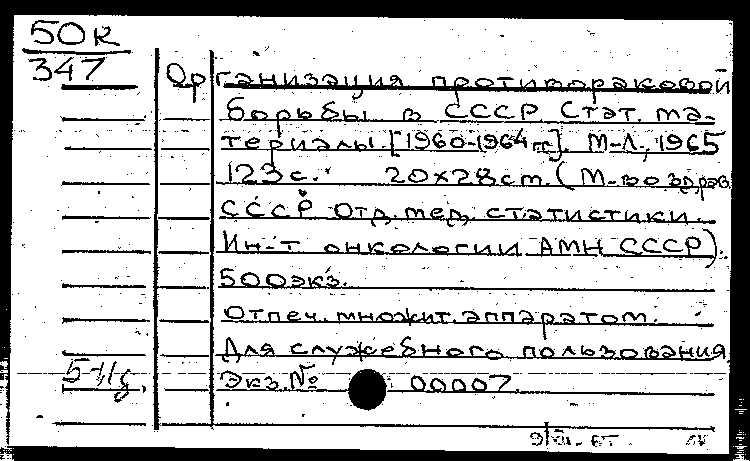 50к
347
Организация противораковой
борьбы в СССР. Стат. ма-
териалы [1960-1964 гг.]. М-Л., 1965
123 с. 20×28 cm. (М-во здрав
СССР Отд. мед. статистики.
Ин-т онкологии АМН СССР).
500 экз.
Отпеч. множит. аппаратом.
Для служебного пользования
Экз. № 00007.